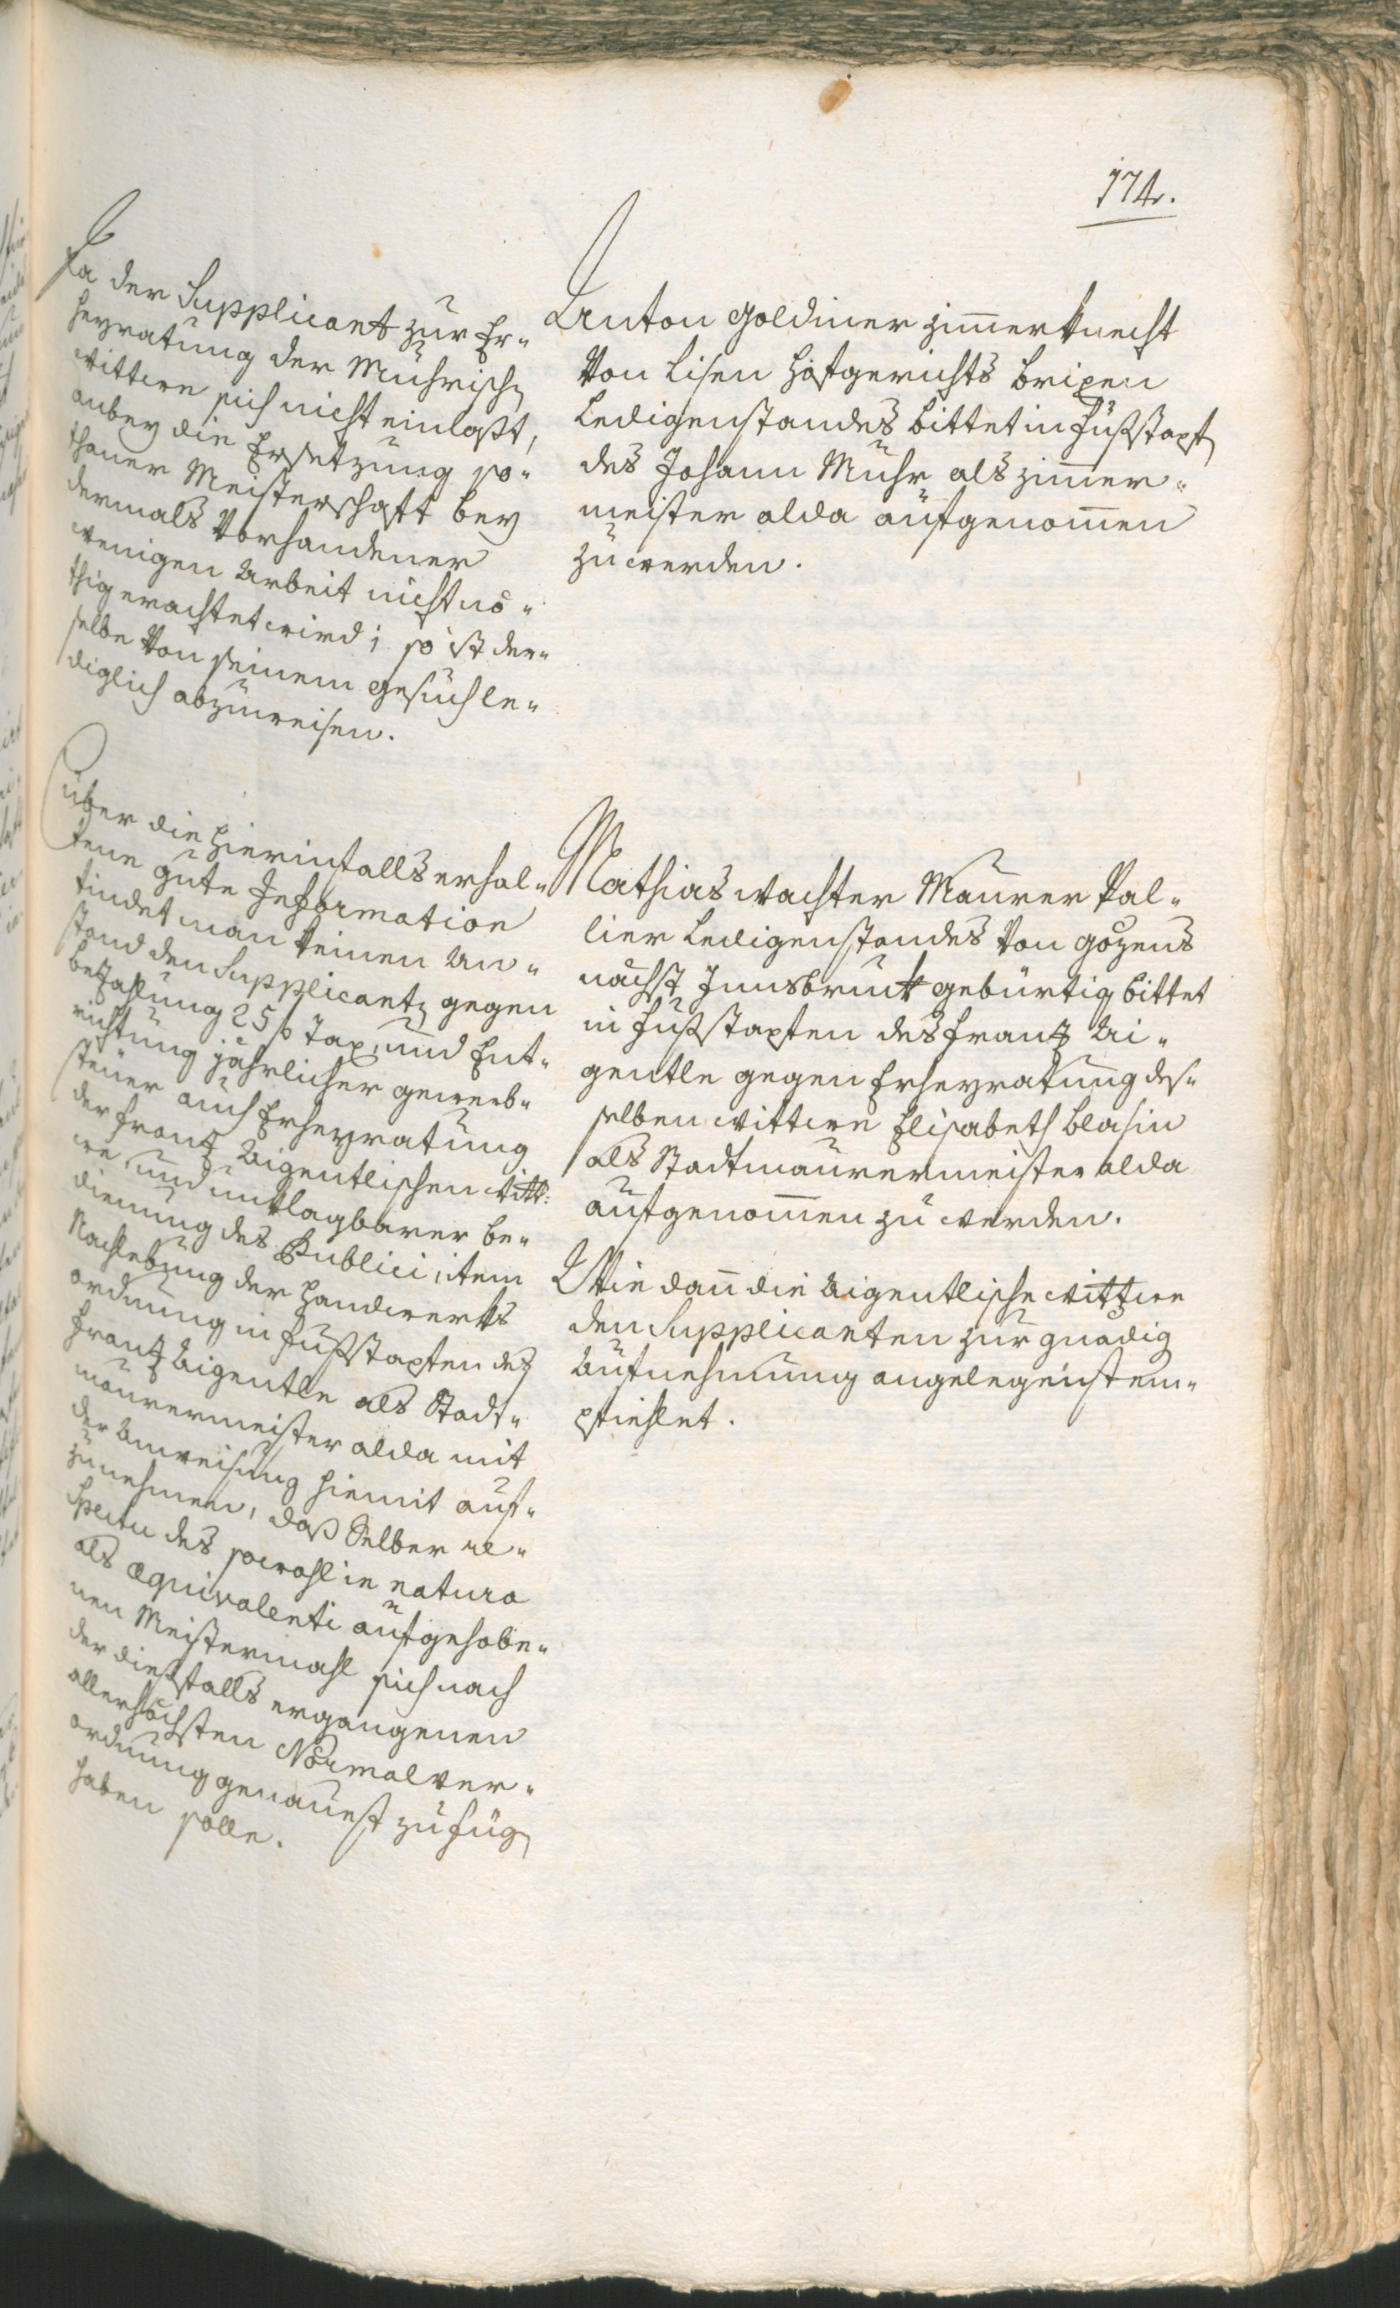 174.
Da der Supplicant zur Er-
heyratung der Muhrisch
Wittwe sich nicht einlaßt,
anbey die Ersetzung so-
thaner Meisterschaft bey
dermals vorhandener
wenigen Arbeit nicht nö-
thig erachtet wird; so ist der-
selbe von seinem gesuch le-
diglich abzuweisen.
Anton Goldiner Zimerknecht
von Lisen Hofgerichts Brixen
Ledigenstandes bittet in Fußstapf
des Johann Muhr als Zimer-
meister alda aufgenomen
zu werden.
Über die hierinfalls erhal-
tene gute Information
findet man keinen An-
stand den Supplicant gegen
bezahlung 25 f Tax, und Ent-
richtung jährlicher gewerb-
steuer auch Erheyratung
der Frantz Aigentlischen Witt-
we, und unklagbarer be-
dienung des Publici, item
Nachlebung der Handwerks
ordnung in Fußstapfen des
Frantz Aigentle als Stadt-
maurermeister alda mit
der Anweisung hiemit auf-
zunehmen, daß Selber re-
spectu des sowohl in natura
als æquivalenti aufgehobe-
nen Meistermahl sich nach
der dießfalls ergangenen
allerhöchsten Normalver-
ordnung genauest zu füg
haben solle.
Mathias Wachter Maurer Pal-
lier Ledigenstandes von Gözens
nächst Innsbruck gebürtig bittet
in Fußstapfen des Frantz Ai-
gentle gegen Erheyratung des-
selben Wittwe Elisabeth Blasin
als Stadtmaurermeister alda
aufgenomen zu werden.
Wie dan die Aigentlische Wittwe
den Supplicanten zur gnädig
Aufnehmung angelegenist em-
pfiehlet.